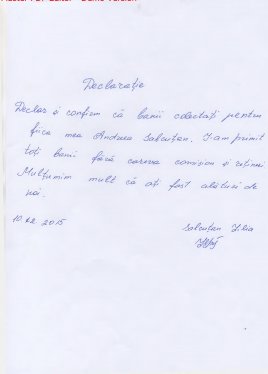 Declarație
Declar și confirm că banii colectați pentru
fiica mea Andreea Salcuțan. I-am primit
toți banii fără careva comision și rețineri
Mulțumim mult că ați fost alături de
noi.
10.12.2015
Salcuțan Ilia